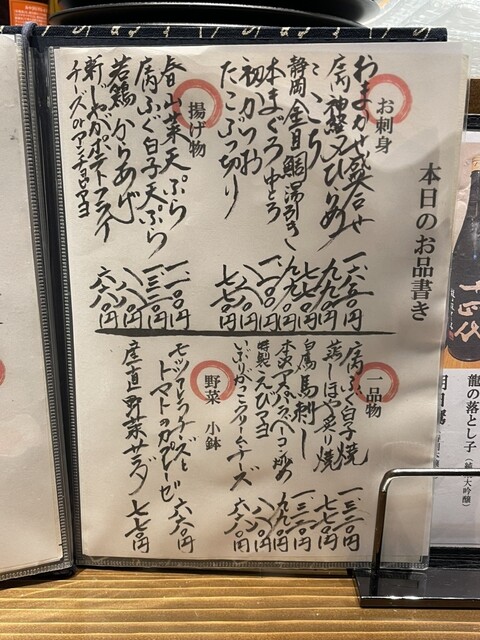 本日のお品書き
お刺身
おまかせ盛合せ 一、六五〇円
虎河豚 神経〆ひらめ 九九〇円
こいち 七七〇円
静岡 金目鯛湯引き 九九〇円
本まぐろ中とろ 一、二一〇円
初かつお 八八〇円
たこぶつ切り 七七〇円
揚げ物
春山菜天ぷら 一、一〇〇円
虎ふぐ白子天ぷら 一、三二〇円
若鶏からあげ 八八〇円
新じゃがポテトフライ
チーズのアンチョビマヨ 六六〇円
一品物
虎ふぐ白子焼 一、三二〇円
蒸しほや炙り焼 七七〇円
会馬 馬刺し 一、三二〇円
アスパラベーコン炒め 九九〇円
特製えびマヨ 八八〇円
いぶりがっこクリームチーズ 六六〇円
野菜 小鉢
モッツァレラチーズと
トマトのカプレーゼ 六六〇円
産直野菜サラダ 七七〇円
十四代
龍の落とし子